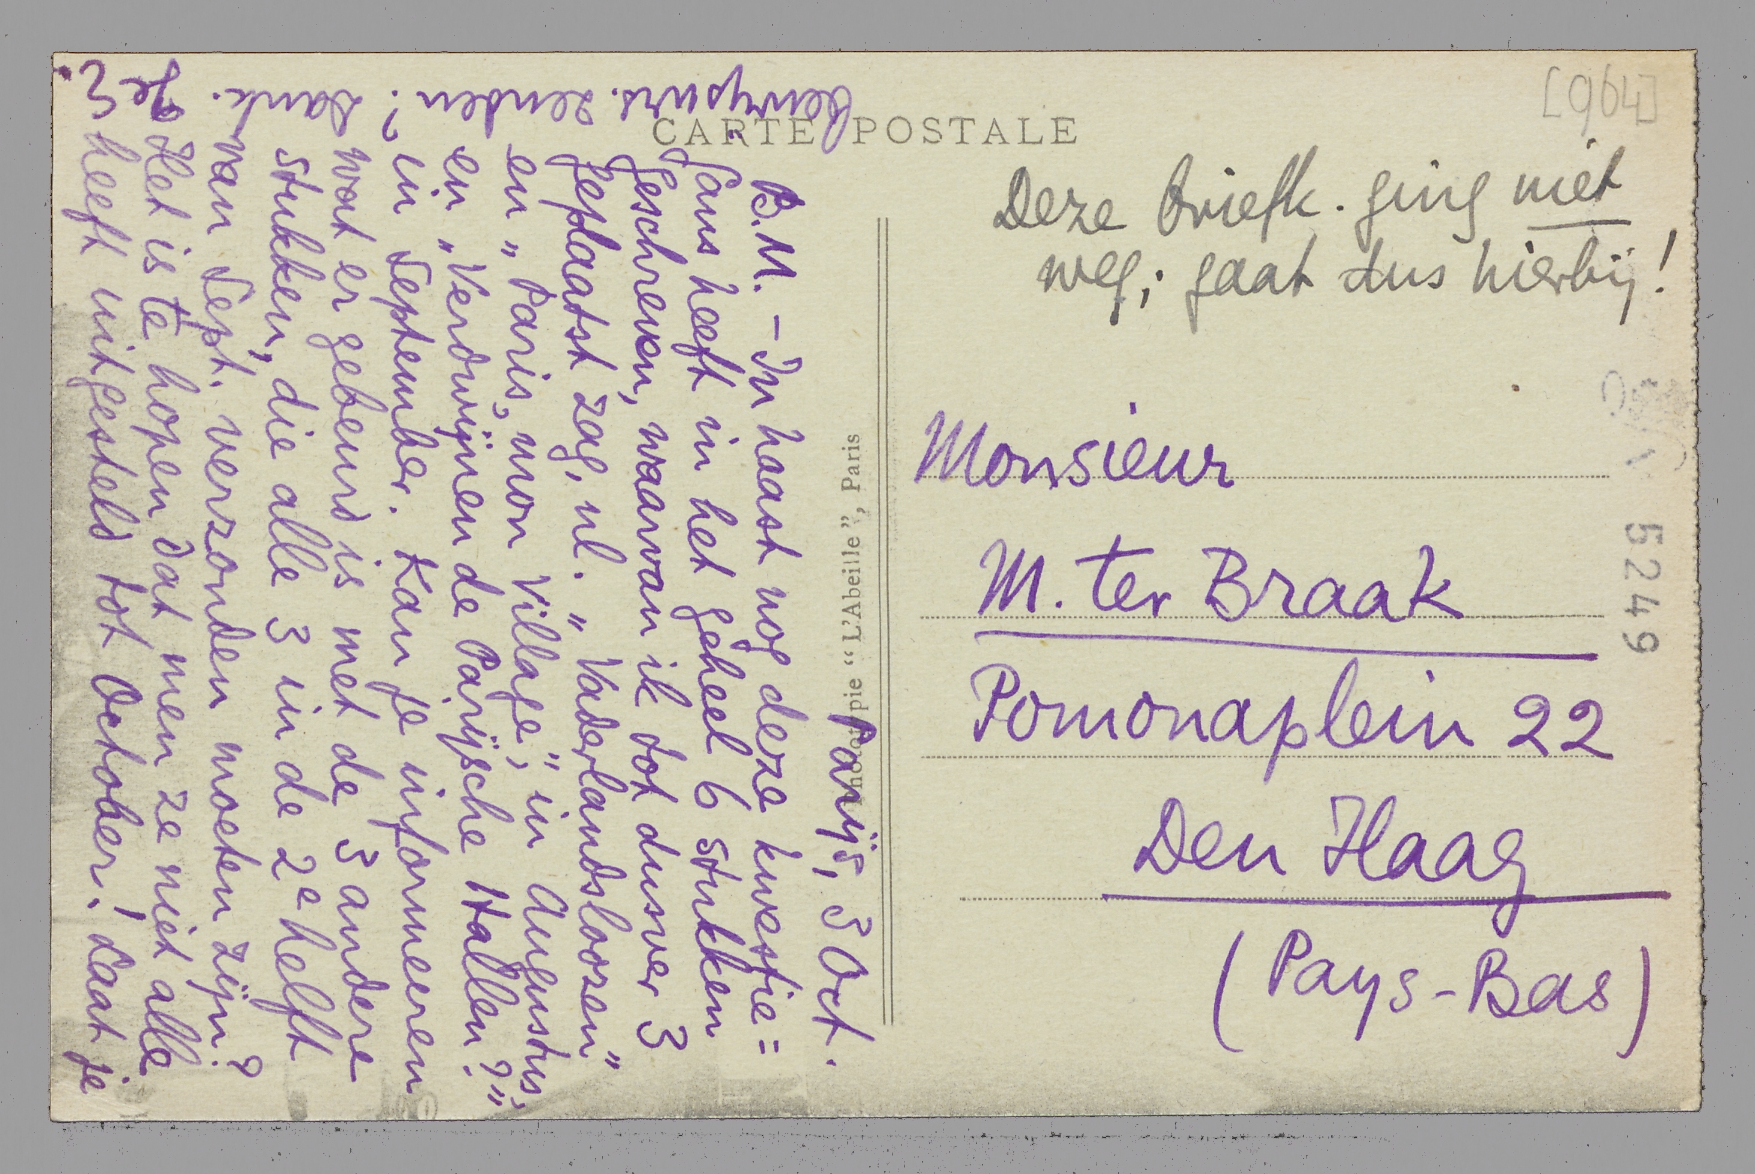 CARTE POSTALE
[964]
Deze briefk. ging niet
weg; gaat dus hierbij!
Parijs, 3 Oct.
B.M. – In haast nog deze kwestie =
Jans heeft in het geheel 6 stukken
geschreven, waarvan ik tot dusver 3
geplaatst zag, nl. "Vaderlandsloozen"
en "Paris, mon Village", in Augustus,
en "Verdwijnen de Parijsche Hallen?"
in September. Kan je informeeren
wat er gebeurd is met de 3 andere
stukken, die alle 3 in de 2e helft
van Sept. verzonden moeten zijn?
Het is te hopen dat men ze niet alle
heeft uitgesteld tot October! Laat je
bewijsnrs. zenden? Dank.
Je
E.
"L'Abeille", Paris
Monsieur
M. ter Braak
Pomonaplein 22
Den Haag
(Pays-Bas)
5249